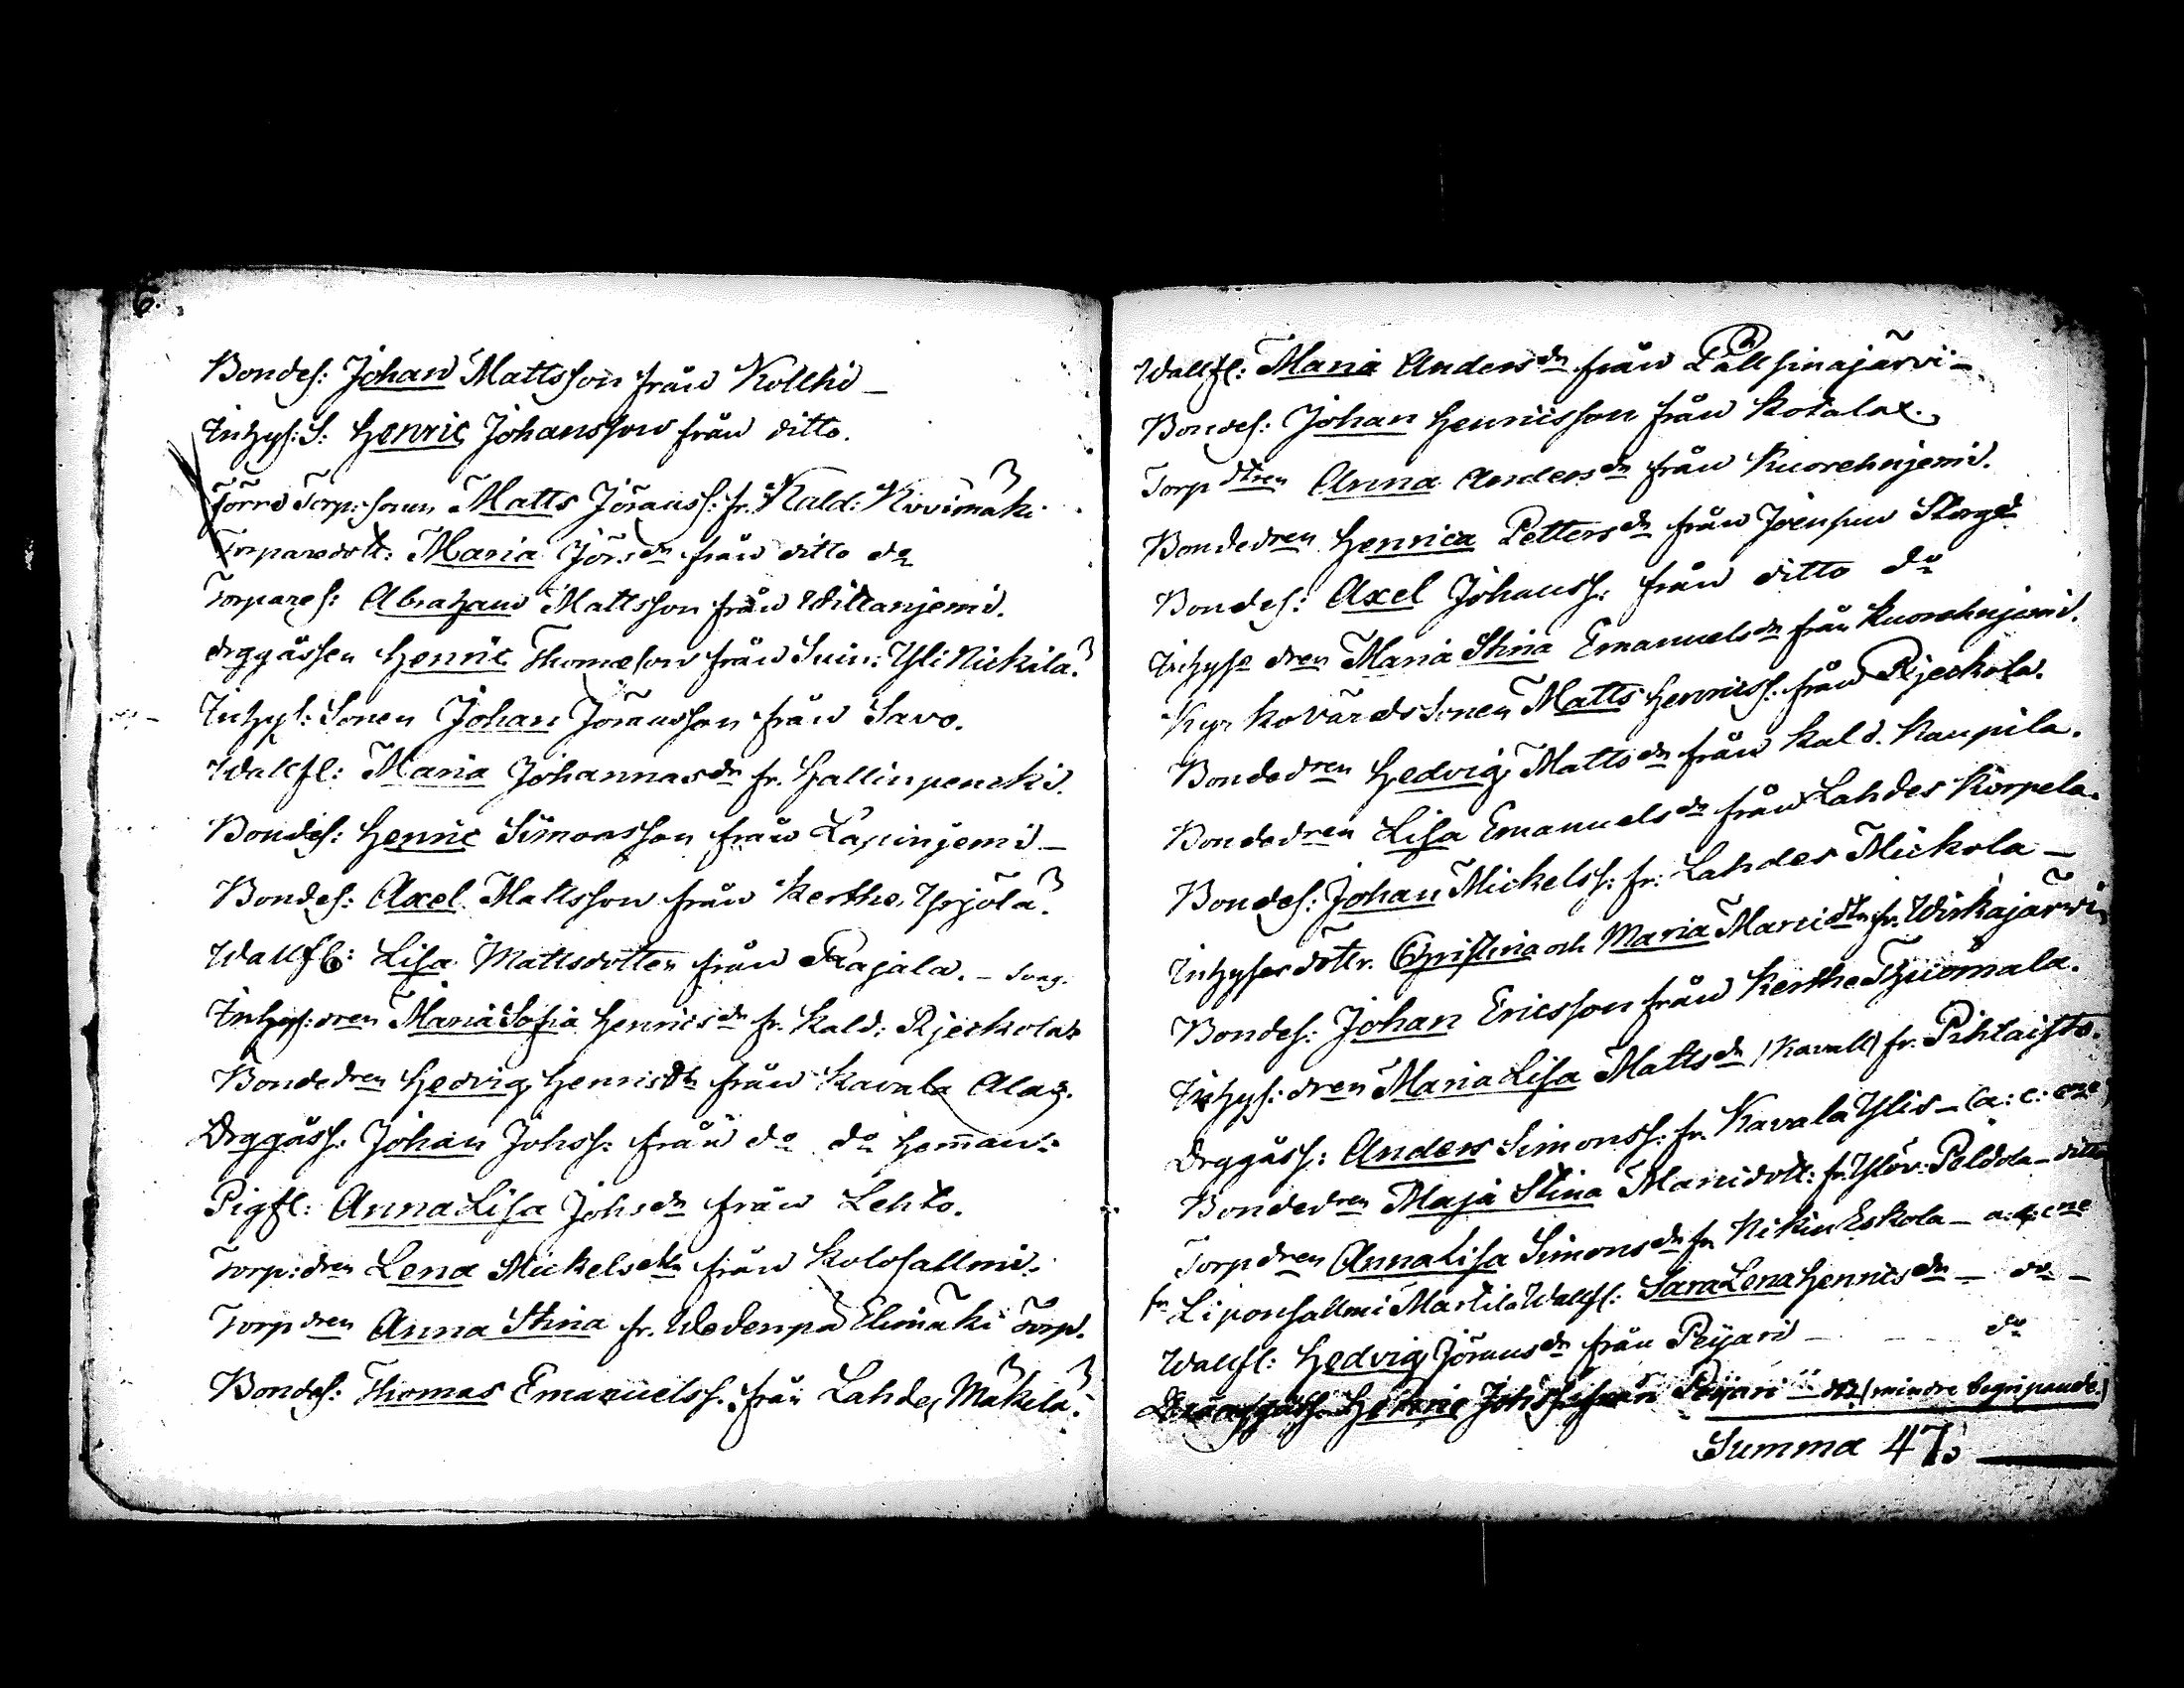 6.
Bondes: Johan Mattsson från Kolkki –
Inhys: S: Henric Johansson från ditto.
Förre Torp: sonen Matts Jöranss: fr. Kald: Kovimäki
Torparedott: Maria Jörs dr från ditto do
Torpares: Abraham Mattsson från Wittaniemi.
drggåssen Henric Thomæson från Suin: Yli Nickilä.
Inhys: Sonen Johan Jöransson från Savo.
Wallfl: Maria Johannas dr fr. Hallinpencki.
Bondes: Henric Simonsson från Lapinjemi –
Bondes: Axel Mattsson från Kerthe, Yrjölä.
Wallfl: Lisa Mattsdotter från Rajala. –
Inhys: dren Maria Sofia Henrics dr fr. Kald: Rjeckola
Bondedren Hedvig Henrics dr från Kavala Alag.
Drggåss: Johan Johss: från do do Hemman:
Pigfl: Anna Lisa Johs dr från Lehto.
Torp: dren Lena Mickels dtr från Kolosallmi.
Torp dren Anna Stina fr. Wedenpä Elimäki Torp.
Bondes: Thomas Emanuelss. från Lahdes Mäkelä.
Wallfl: Maria Anders dr från Pallsinajärvi –
Bondes: Johan Henricsson från Kotalax.
Torp dtren Anna Anders dr från Kuorehnjemi.
Bondedren Henrica Petters dr från Joensuu Storgd
Bondes: Axel Johanss: från ditto do
Inhyse dren Maria Stina Emanuels dr från Kuorehnjemi.
Kyrkovärds Sonen Matts Henricss: från Rjeckola.
Bondedren Hedvig Matts dr från Kald. Kaupila.
Bondedren Lisa Emanuels dr från Lahdes Korpela.
Bondes: Johan Mickelss: fr: Lahdes Mickola –
Inhyses döttr. Christina och Maria Marci dtr fr. Wirkajärwi
Bondes: Johan Ericsson från Kerthe Thuomala.
Inhys: dren Maria Lisa Matts dr (Kavall) fr. Pihlaisto.
Drggåss: Anders Simonss: fr. Kavala Ylis – (a: c: cne)
Bondedren Maja Stina Marcidott: fr. Ylöv: Peldola – ditto
Torp dren Anna Lisa Simons dr fr. Nikin Eskola – a: c: cne
fr Liponsallmi Martila Wallfl: Sara Lena Henrics dr – do –
Wallfl: Hedvig Jörans dr från Peijari – do
Henric Johss: från Peijari – do (mindre begripande)
Summa 47.